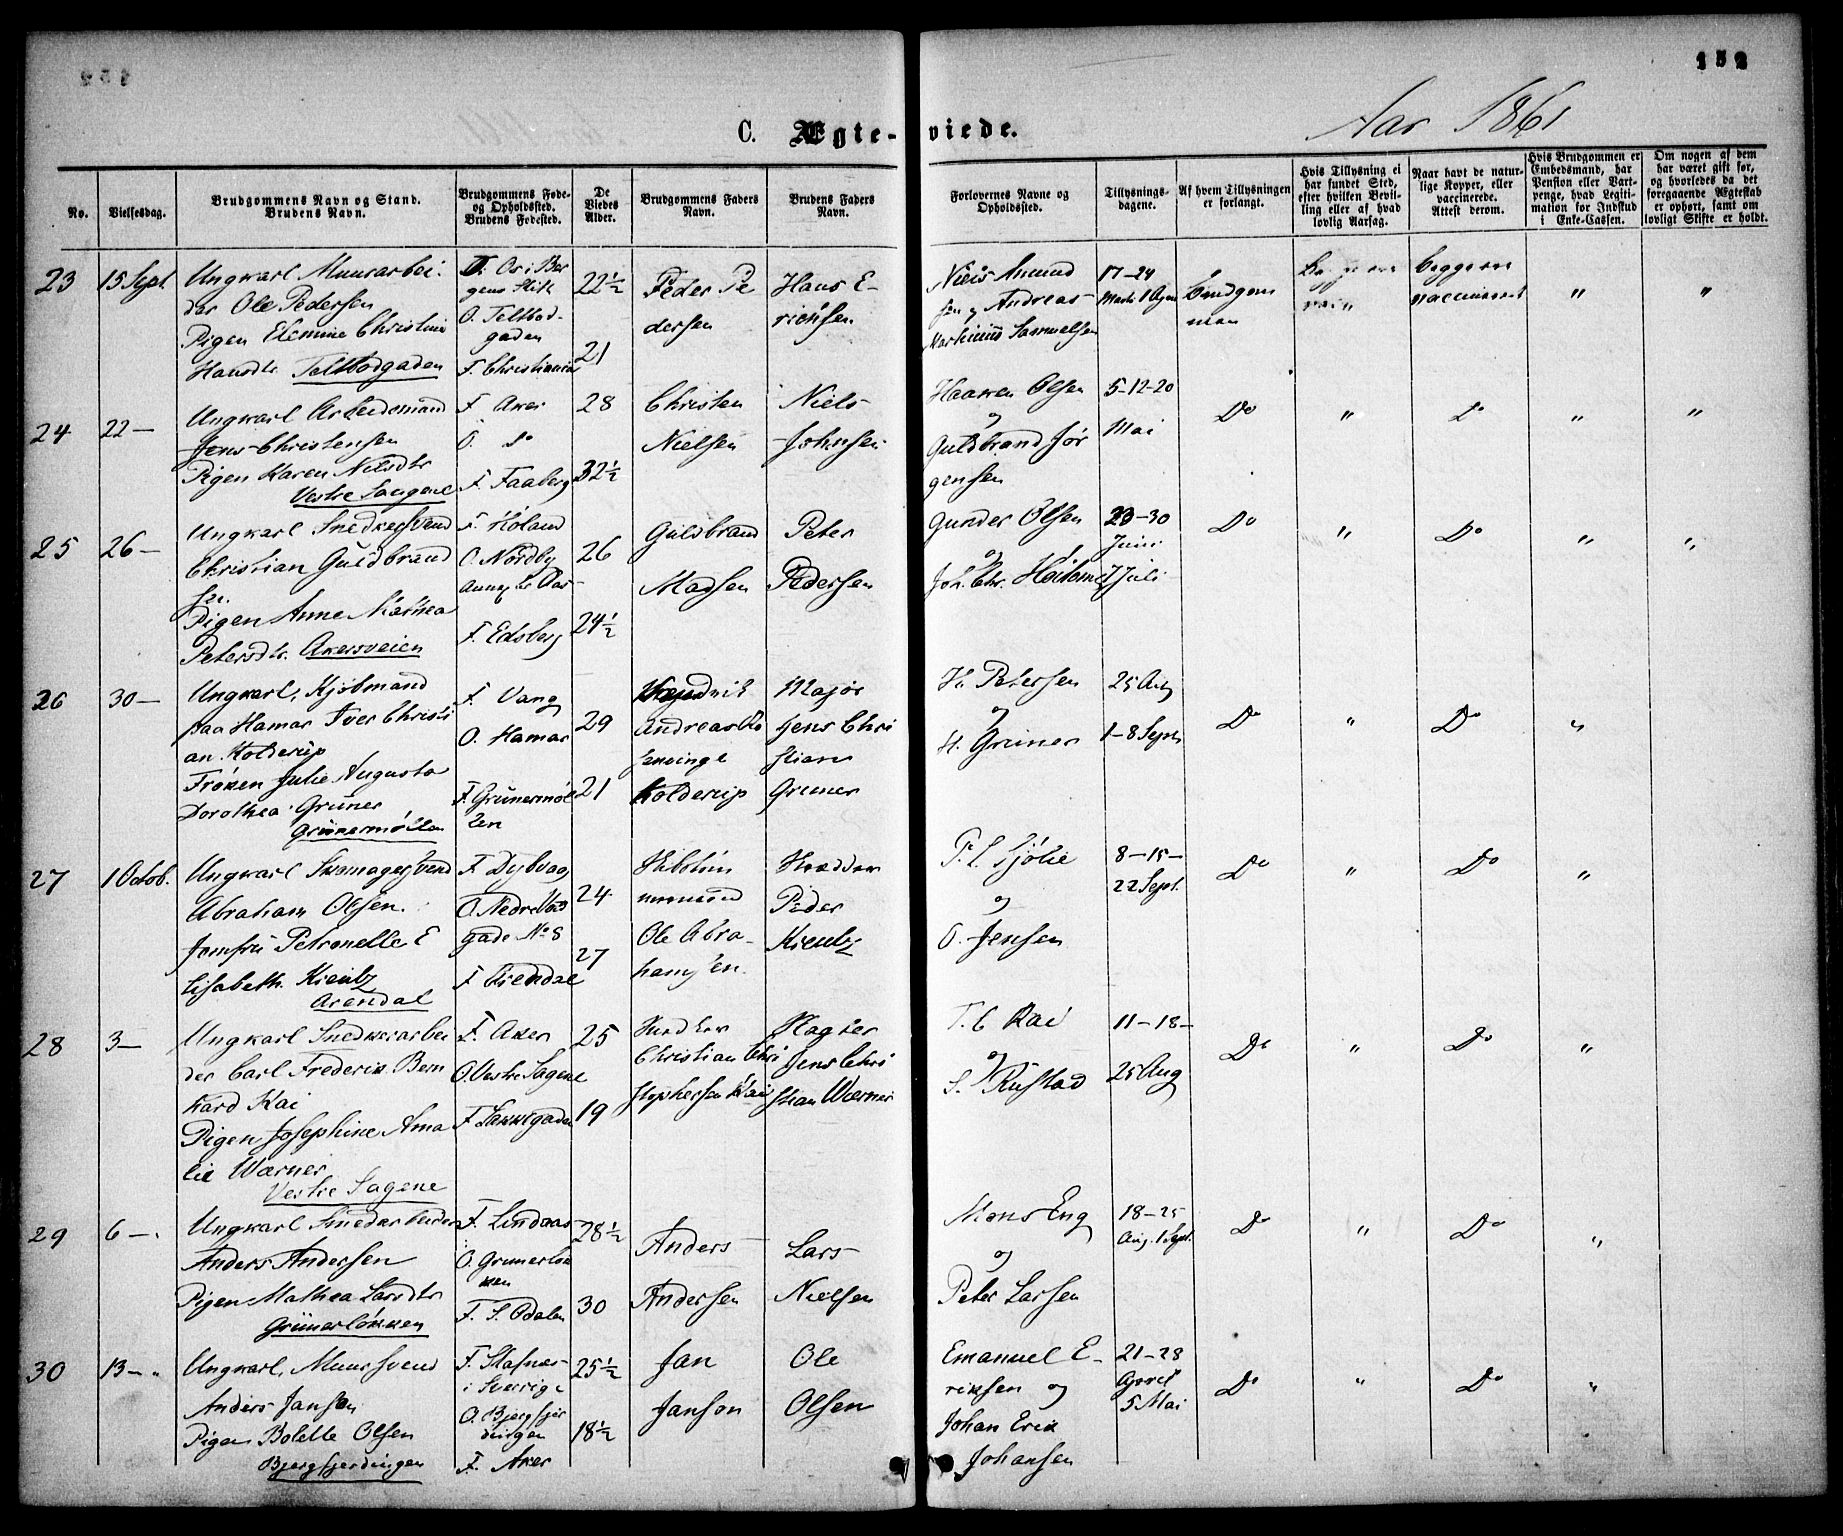 152
C. Ægte-viede.
Aar 1861
No.
Vielsesdag.
Brudgommens Navn og Stand.
Brudens Navn.
Brudgommens Føde-
og Opholdssted.
Brudens Fødested.
De
Viedes
Alder.
Brudgommens Faders
Navn.
Brudens Faders
Navn.
Forlovernes Navne og
Opholdssted.
Tillysnings-
dagene.
Af hvem Tillysningen
er forlangt.
Hvis Tillysning ei
har fundet Sted,
efter hvilken Bevil-
ling eller af hvad
lovlig Aarsag.
Naar havt de natur-
lige Kopper, eller
vaccinerede.
Attest derom.
Hvis Brudgommen er
Embedsmand, har
Pension eller Vart-
penge, hvad Legiti-
mation for Indskud
i Enke-Cassen.
Om nogen af dem
har været gift før,
og hvorledes da det
foregaaende Ægteskab
er ophørt, samt om
lovligt Skifte er holdt.
23
15 Sept.
Ungkarl Muurarbei-
der Ole Pedersen
Pigen Elemine Christine
Hansdtr Teltbodgaden
F. Os i Ber
gens Stift
O. Teltbod-
gaden
F. Christiania
22½
21
Peder Pe
dersen
Hans E-
richsen
Niels Amund
sen og Andreas
Martinius Samuelsen
17-24
Marts 1 April
Brudgom
men
begge ere
vaccineret
"
"
24
22 -
Ungkarl Arbeidsmand
Jens Christensen
Pigen Karen Nilsdtr
Vestre Saugene
F. Aker
O. do
F. Faaberg
28
32½
Christen
Nielsen
Niels
Johnsen
Haaken Olsen
og
Guldbrand Jør
gensen
5-12-20
Mai
Do
"
Do
"
"
25
26 -
Ungkarl Snedkersvend
Christian Guldbrand
sen.
Pigen Anne Mathea
Petersdtr. Akersveien
F. Høland
O. Nordby
F. Edsberg
26
24½
Guldbrand
Madsen
Peter
Pedersen
Gunder Olsen
og
Joh. Chr. Holtom
23-30
Juni
7 Juli
Do
"
Do
"
"
26
30 -
Ungkarl, Kjøbmand
paa Hamar Iver Christi
an Kolderup
Frøken Julie Augusta
Dorothea Grüner
Grünermøllen
F. Vang
O. Hamar
F. Grünermøl
len
29
21
Andreas Ro
senvinge
Kolderup
Major
Jens Chri
stian
Gruner
H. Petersen
og
H. Grüner
25 Aug
1-8 Sept
Do
"
Do
"
27
1 Octob.
Ungkarl Skomagersvend
Abraham Olsen.
Jomfru Petronelle E
lisabeth Kreutz
Arendal
F. Dybvaag
O. Nedre Vos
gade No 8
F. Arendal
24
27
Ole Abra-
hamsen.
Skrædder
Peder
Kreutz
P. L. Sjølie
og
O. Jensen
8-15-
22 Sept.
Do
"
Do
"
28
3 -
Ungkarl Snedkerarbei
der Carl Frederik Bern
hard Kai
Pigen Josephine Ama
lie Warner
Vestre Sagene
F. Aker
O. Vestre Sagene
F. Lakkegaden
25
19
Christian Chri
stophersen Kai
Jens Chri
stian Warner
T. C Kai
og
S. Rustad
11-18-
25 Aug
Do
"
Do
"
29
6 -
Ungkarl Smedarbeider
Anders Andersen
Pigen Mathea Larsdtr
Grünerløkken
F. Lindaas
O. Grunerløk
ken
F. S. Odalen
28½
30
Anders
Andersen
Lars
Nielsen
Mons Eng
og
Peter Larsen
18-25
Aug. 1 Sept.
Do
"
Do
"
30
13 -
Ungkarl, Muursvend
Anders Janson
Pigen Bolette Olsen
Bjergfjerdingen
F. Stafnæs
i Sverrige
O. Bjergfjer
dingen
F. Aker
25½
18½
Jan
Janson
Ole
Olsen
Emanuel E-
riksen og
Johan Erik
Johansen
21-28
April
5 Mai
Do
"
Do
"